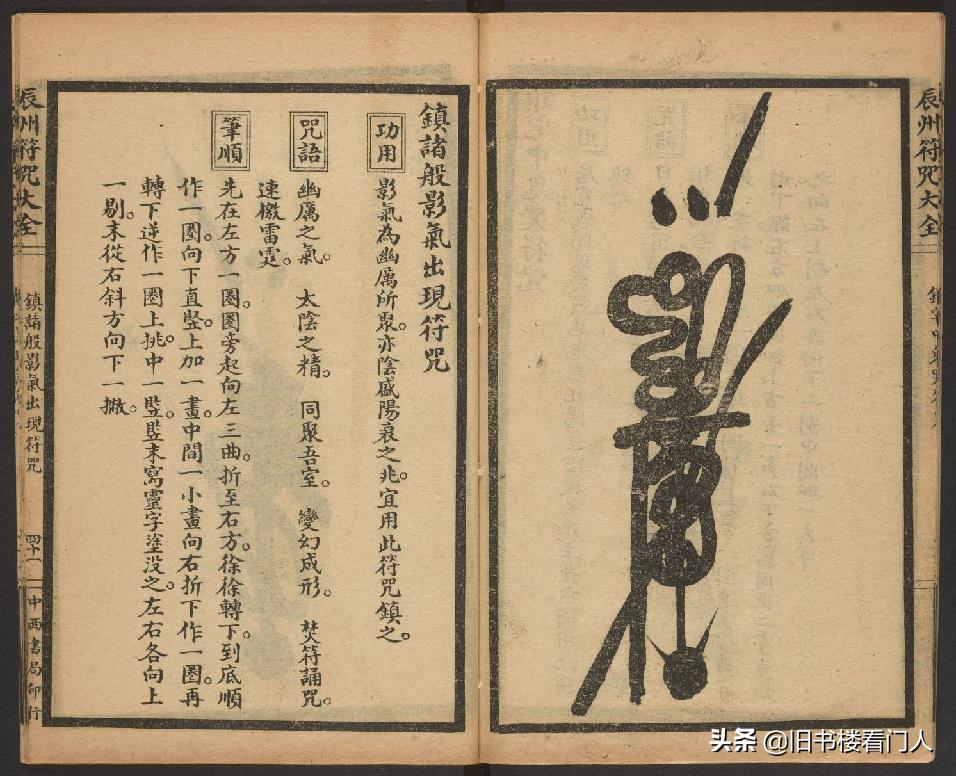 辰州符咒大全
鎮諸般影氣出現符咒
功用 影氣為幽厲所聚。亦陰盛陽衰之兆。宜用此符咒鎮之。
咒語 幽厲之氣。 太陰之精。 同聚吾室。 變幻成形。 焚符誦咒。
速檄雷霆。
筆順 先在左方一圈。圈旁起向左三曲。折至右方。徐徐轉下。到底順
作一圈向下直竪。上加一畫。中間一小畫向右折下作一圈。再
轉下逆作一圈上挑。中一竪。竪末寫靈字塗沒之。左右各向上
一剔。末從右斜方向下一撇。
辰州符咒大全
鎮諸般影氣出現符咒
四十一
中西書局印行
头条 @旧书楼看门人